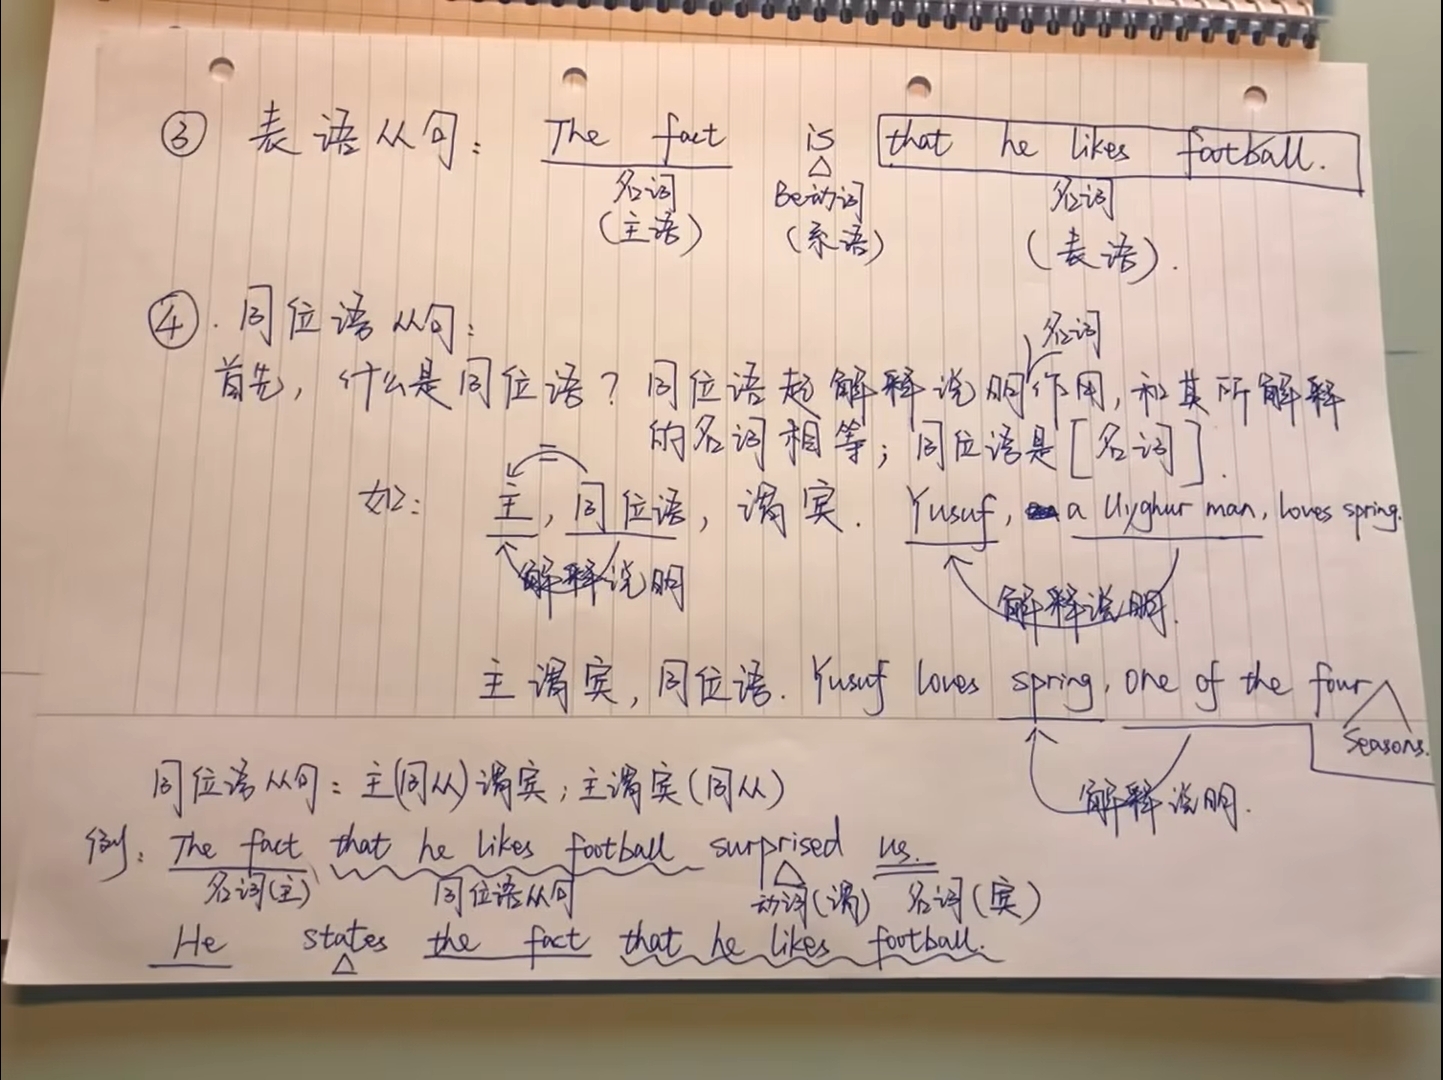 ③ 表语从句： The fact is that he likes football.
名词 Be动词 名词
(主语) (系语) (表语).
④. 同位语从句：
名词
首先，什么是同位语？同位语起解释说明作用，和其所解释
的名词相等；同位语是[名词].
=
如： 主，同位语，谓宾. Yusuf, a Uyghur man, loves spring.
解释说明 解释说明.
主谓宾，同位语. Yusuf loves spring, one of the four
seasons.
解释说明.
同位语从句：主(同从)谓宾；主谓宾(同从)
例：The fact that he likes football surprised us.
名词(主) 同位语从句 动词(谓) 名词(宾)
He states the fact that he likes football.